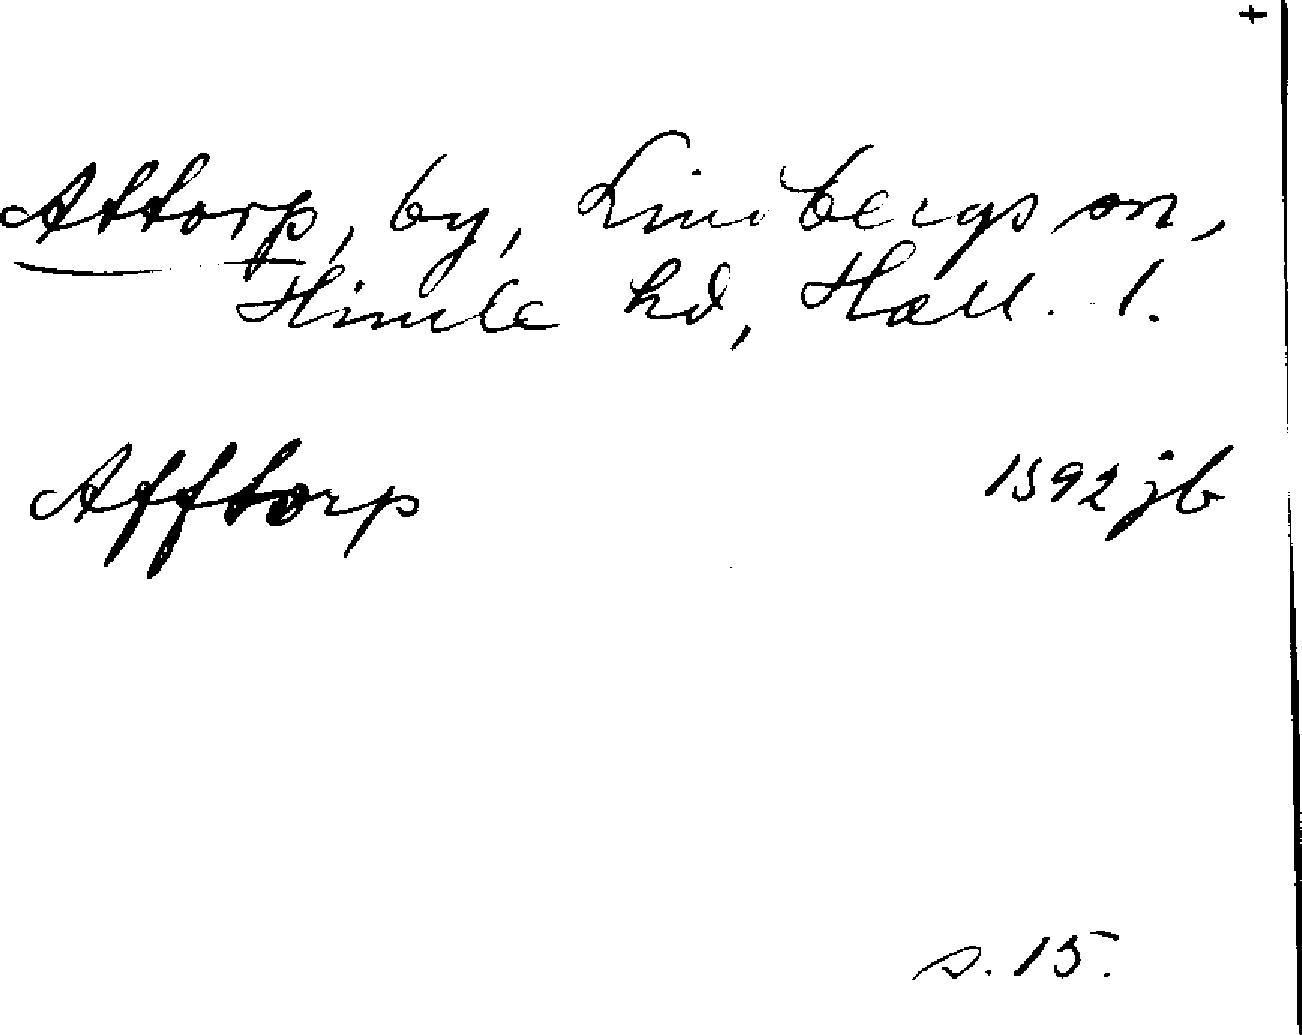 +
Attorp, by, Lindbergs sn,
Himle hd, Hall. l.
Afftorp 1592 jb
s. 15.